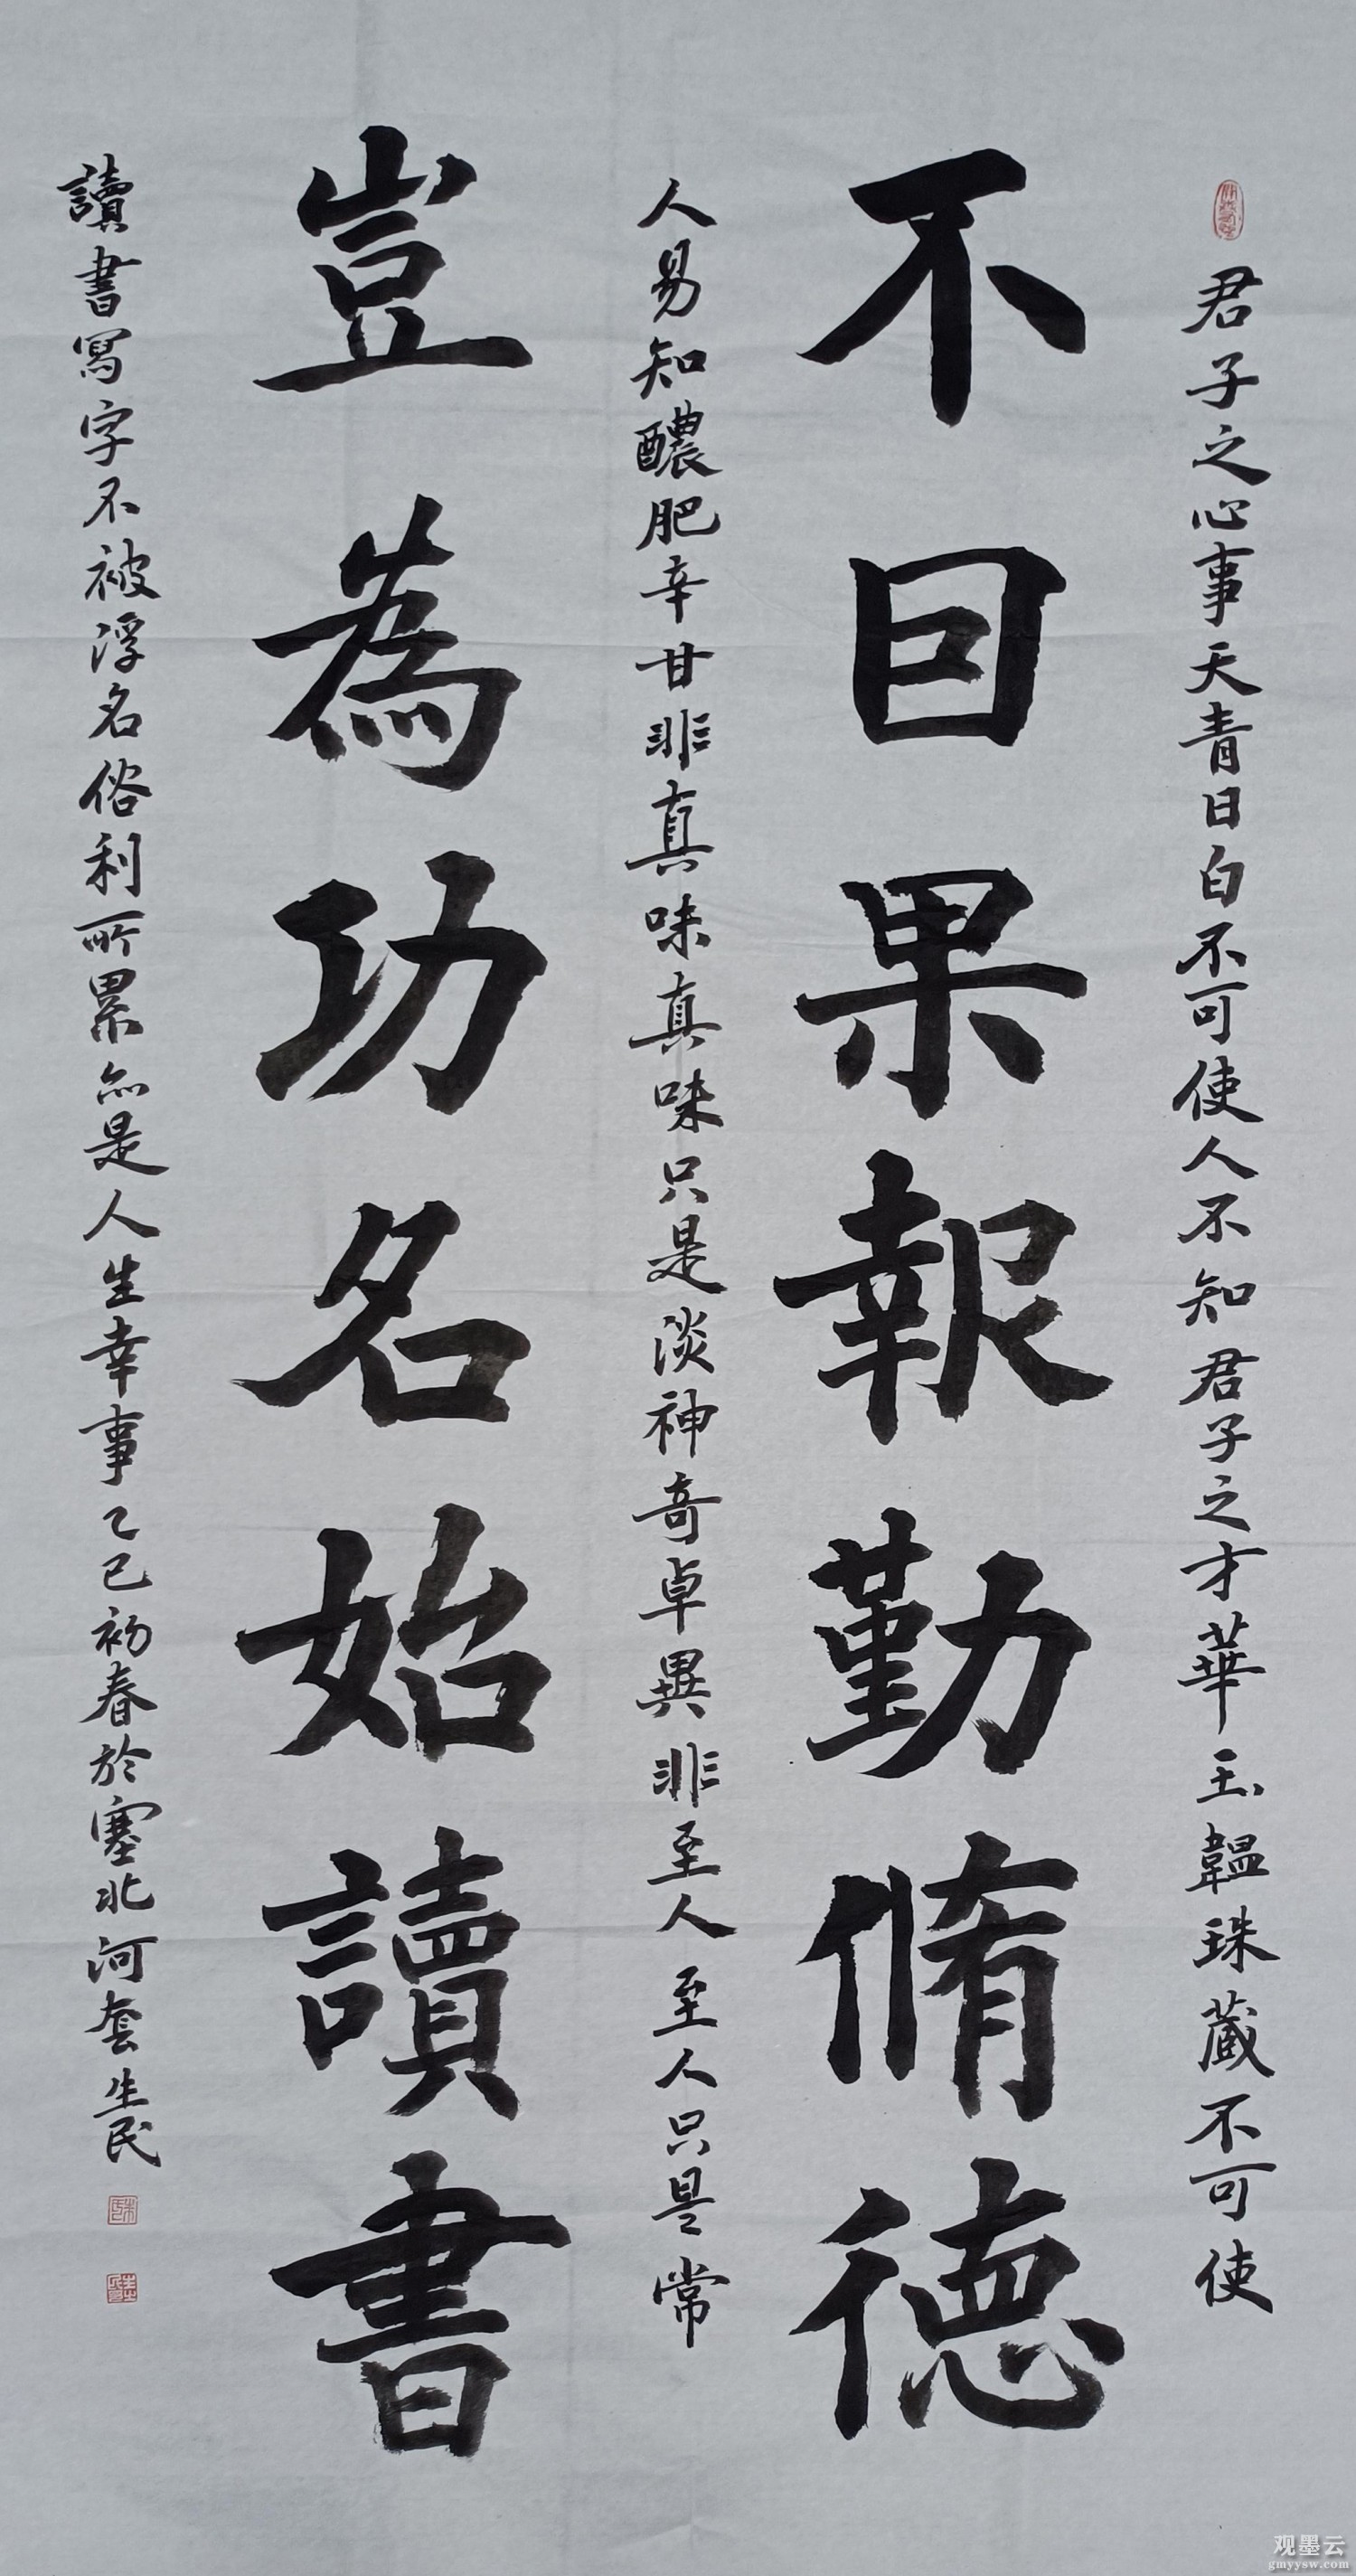 君子之心事天青日白不可使人不知君子之才華玉韞珠蔵不可使
不因果報勤脩德
人易知醲肥辛甘非真味真味只是淡神奇卓異非至人至人只是常
豈為功名始讀書
讀書寫字不被浮名俗利所累亦是人生幸事乙巳初春於塞北河套生民
观墨云
gmyysw.com